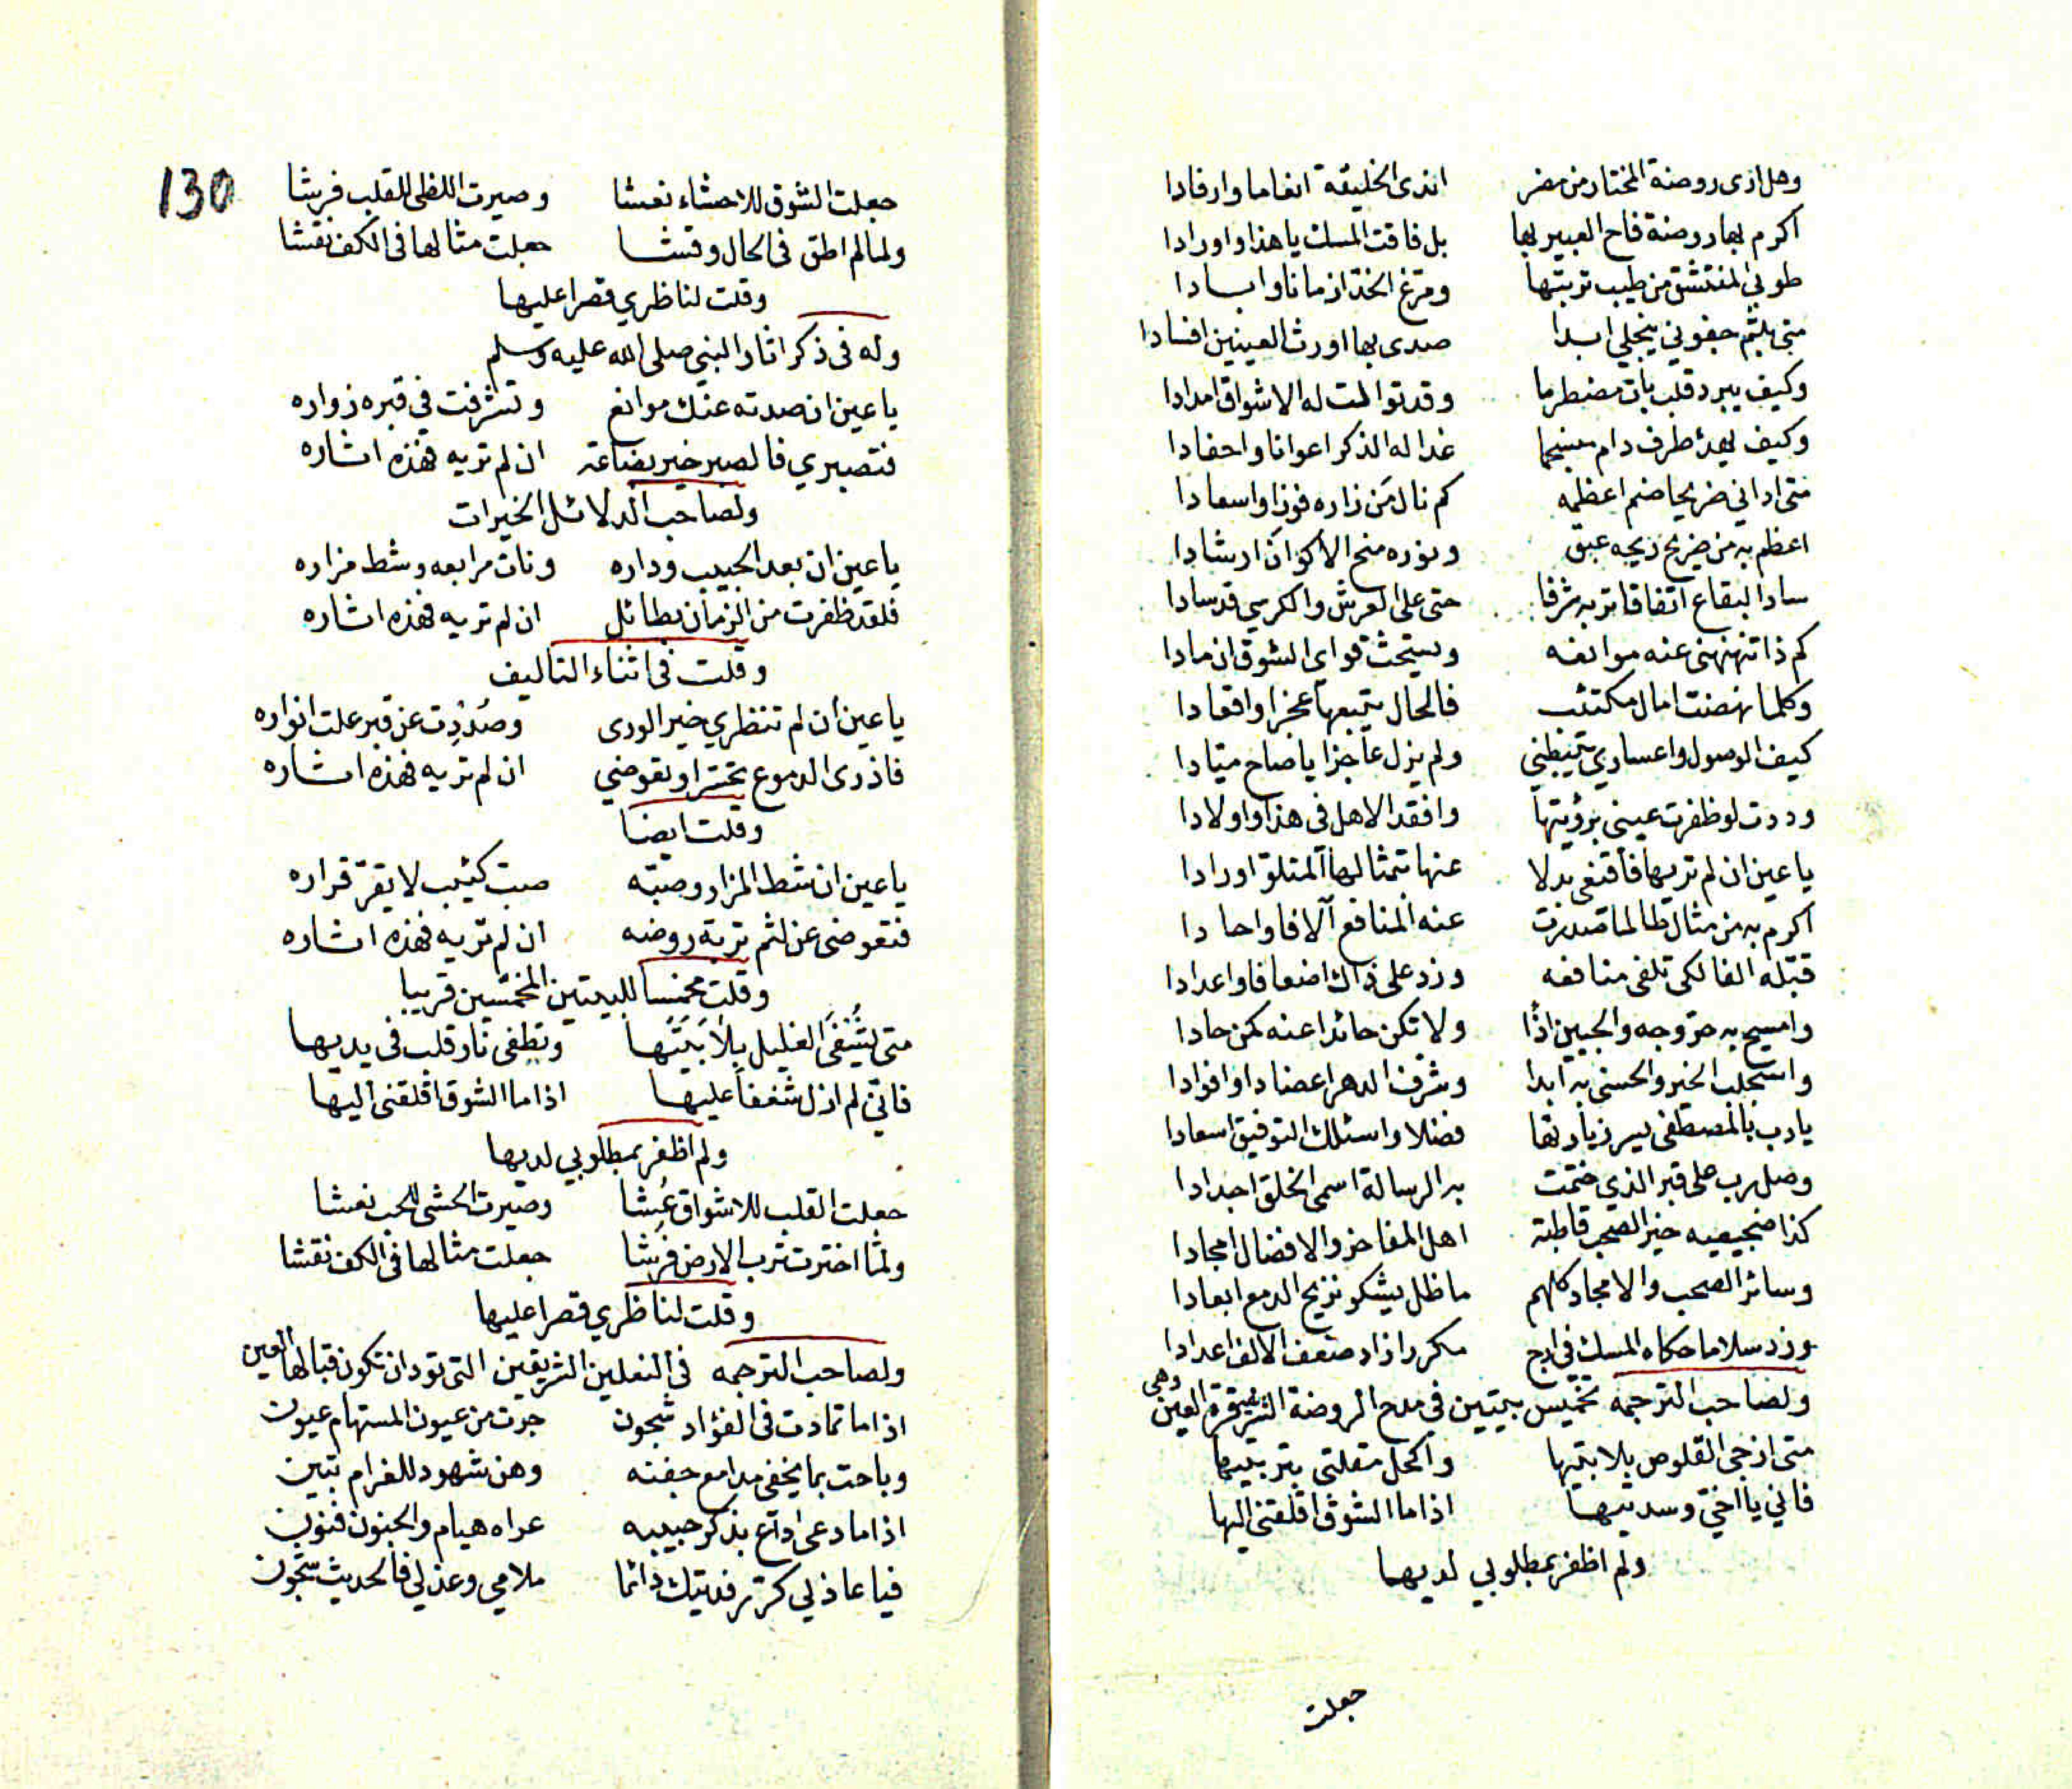 وهل ارى روضة المختار من مضر اندى الخليقة انعاما وارفادا
اكرم بها روضة فاح العبير بها بل فاقت المسك يا هذا واورادا
طوبى لمنتشق من طيب تربتها ومرغ الخد ازمانا وابادا
متى بلثم جفوني ينجلي ابدا صدى بها اورث العينين افسادا
وكيف يبرد قلب بات مضطرما وقد توالت له الاشواق امدادا
وكيف يهدئ طرف دام منسجما غدا له الذكر اعوانا واحفادا
متى اراني ضريحا ضم اعظمه كم نال من زاره فوزا واسعادا
اعظم به من ضريح ريحه عبق ونوره منح الاكوان ارشادا
ساد البقاع اتفاقا تربه شرفا حتى على العرش والكرسي قد سادا
كم ذا تنهنهني عنه موانعه ويستحث قواي الشوق ان مادا
وكلما نهضت امال مكتئب فالحال يتبعها عجزا واقعادا
كيف الوصول واعساري يثبطني ولم يزل عاجزا يا صاح ميادا
وددت لو ظفرت عيني برؤيتها وافقد الاهل في هذا واولادا
يا عين ان لم تريها فاقتفي بدلا عنها تمثالها المتلو اورادا
اكرم به من مثال طالما صدرت عنه المنافع آلافا واحادا
قبله الفا لكي تلفى منافعه وزد على ذاك اضعافا واعدادا
وامسح به حر وجه والجبين اذا ولا تكن حائدا عنه كمن حادا
واستجلب الخير والحسنى به ابدا وشرف الدهر اعضادا وافوادا
يا رب بالمصطفى يسر زيارتها فضلا واسئلك التوفيق اسعادا
وصل رب على قبر الذي ختمت به الرسالة اسمى الخلق اجدادا
كذا ضجيعيه خير الصحب قاطبة اهل المفاخر والافضال امجادا
وسائر الصحب والامجاد كلهم ما ظل يشكو نزيح الدمع ابعادا
وزد سلاما حكاه المسك في ارج مكررا زاد ضعف الالف اعدادا
ولصاحب الترجمه تخميس بيتين في مدح الروضة الشريفة قرة العين وهي
متى ازجي القلوص بلا بتيها واكحل مقلتي بتربتيها
فاني يا اخي وسدتيها اذا ما الشوق اقلقني اليها
ولم اظفر بمطلوبي لديها
جعلت
130
جعلت الشوق للاحشاء نعشا وصيرت اللظى للقلب فرشا
ولما لم اطق في الحال وقشا جعلت مثالها في الكف نقشا
وقلت لناظري قصرا عليها
وله في ذكر اثار النبي صلى الله عليه وسلم
يا عين ان صدته عنك موانع وتشرفت في قبره زواره
فتصبري فالصبر خير بضاعة ان لم تريه فهذه اثاره
ولصاحب الدلائل الخيرات
يا عين ان بعد الحبيب وداره ونات مرابعه وشط مزاره
فلقد ظفرت من الزمان بطائل ان لم تريه فهذه اثاره
وقلت في اثناء التاليف
يا عين ان لم تنظري خير الورى وصددت عن قبر علت انواره
فاذرى الدموع تحسرا وتعوضي ان لم تريه فهذه اثاره
وقلت ايضا
يا عين ان شط المزار وصبه صب كئيب لا يقر قراره
فتعوضى عن لثم تربة روضه ان لم تريه فهذه اثاره
وقلت مخمسا للبيتين المخمسين قريبا
متى يشفى الغليل بلابتيها وتطفى نار قلب في يديها
فاني لم ازل شغفا عليها اذا ما الشوق اقلقني اليها
ولم اظفر بمطلوبي لديها
جعلت القلب للاشواق عشا وصيرت الحشى للحب نعشا
ولما اخترت ترب الارض فرشا جعلت مثالها في الكف نقشا
وقلت لناظري قصرا عليها
ولصاحب الترجمه في النعلين الشريفين التي تود ان تكون قبالها العين
اذا ما تمادت في الفؤاد شجون جرت من عيون المستهام عيون
وباحت بما يخفى مدامع جفنه وهن شهود للغرام تبين
اذا ما دعى داع بذكر حبيبه عراه هيام والجنون فنون
فيا عاذلي كرر فديتك دائما ملامي وعذلي فالحديث شجون